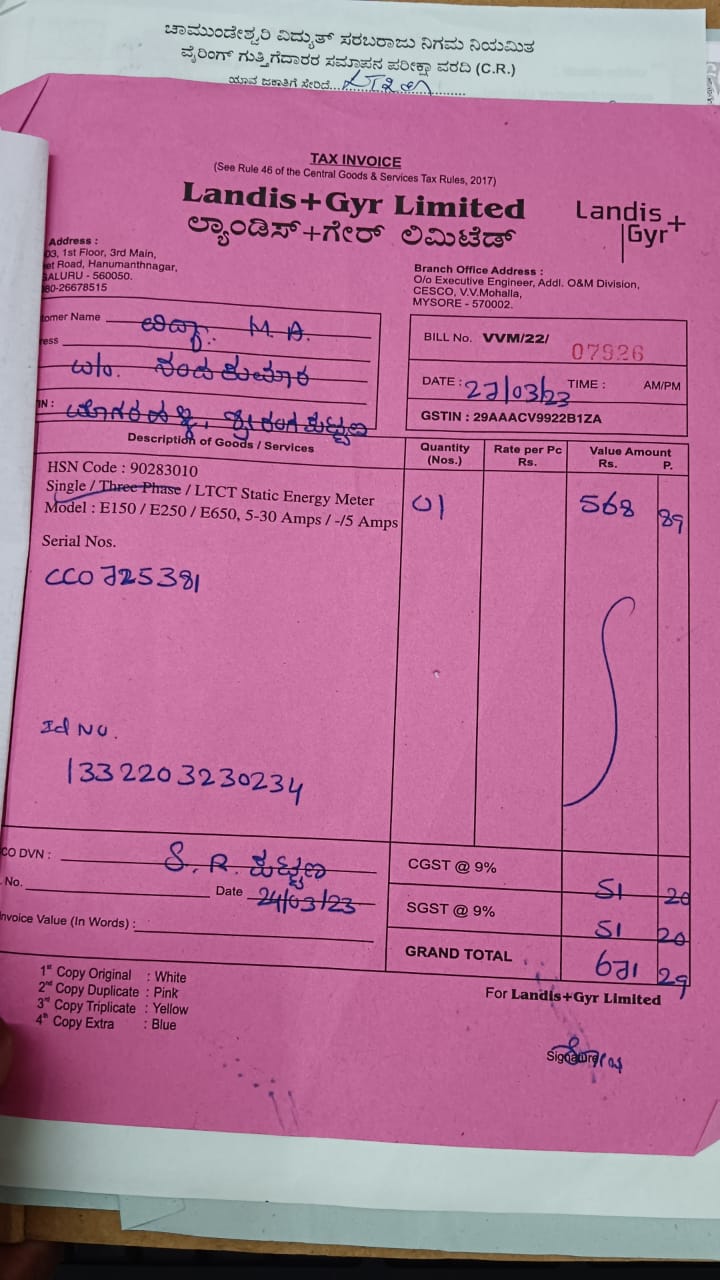 ಚಾಮುಂಡೇಶ್ವರಿ ವಿದ್ಯುತ್ ಸರಬರಾಜು ನಿಗಮ ನಿಯಮಿತ
ವೈರಿಂಗ್ ಗುತ್ತಿಗೆದಾರರ ಸಮಾಪನ ಪರೀಕ್ಷಾ ವರದಿ (C.R.)
ಯಾವ ಜಕಾತಿಗೆ ಸೇರಿದೆ...
TAX INVOICE
(See Rule 46 of the Central Goods & Services Tax Rules, 2017)
Landis+Gyr Limited
ಲ್ಯಾಂಡಿಸ್+ಗೇರ್ ಲಿಮಿಟೆಡ್
Landis+Gyr
Address :
03, 1st Floor, 3rd Main,
et Road, Hanumanthnagar,
GALURU - 560050.
080-26678515
Branch Office Address :
O/o Executive Engineer, Addl. O&M Division,
CESCO, V.V.Mohalla,
MYSORE - 570002.
tomer Name ವಿದ್ಯಾ. M. A.
ress
ನಂದಕುಮಾರ
IN :
BILL No. VVM/22/ 07926
DATE : 27/03/23 TIME : AM/PM
GSTIN : 29AAACV9922B1ZA
Description of Goods / Services Quantity (Nos.) Rate per Pc Rs. Value Amount Rs. P.
HSN Code : 90283010
Single / Three Phase / LTCT Static Energy Meter
Model : E150 / E250 / E650, 5-30 Amps / -/5 Amps 01 568 89
Serial Nos.
CC0725381
Id No.
1332203230234
CO DVN : S. R. ಪಟ್ಟಣ
. No. Date 24/03/23
nvoice Value (In Words) :
CGST @ 9% 51 20
SGST @ 9% 51 20
GRAND TOTAL 671 29
1st Copy Original : White
2nd Copy Duplicate : Pink
3rd Copy Triplicate : Yellow
4th Copy Extra : Blue
For Landis+Gyr Limited
Signature